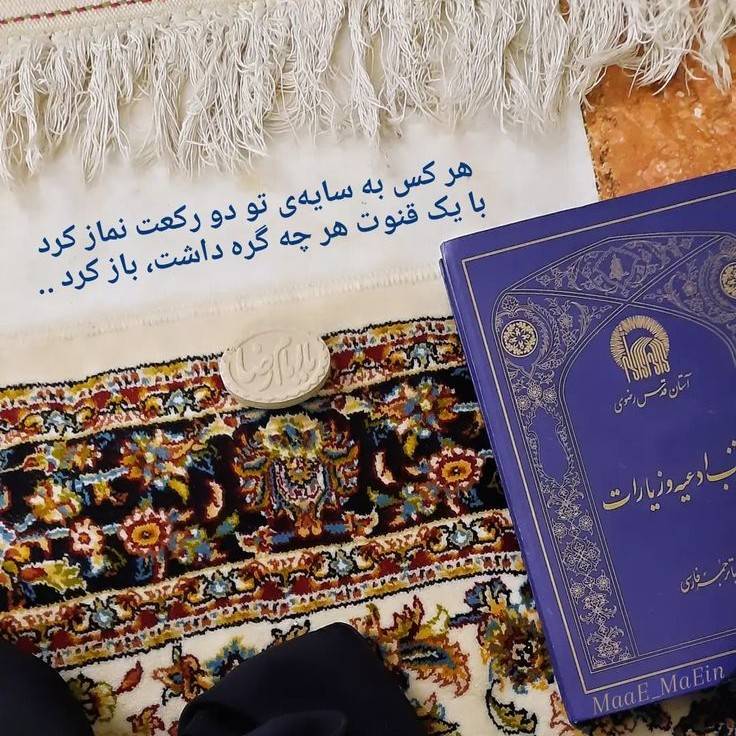 هر کس به سایه‌ی تو دو رکعت نماز کرد
با یک قنوت هر چه گره داشت، باز کرد ..
یا امام رضا
آستان قدس رضوی
ادعیه و زیارات
با ترجمه فارسی
MaaE_MaEin